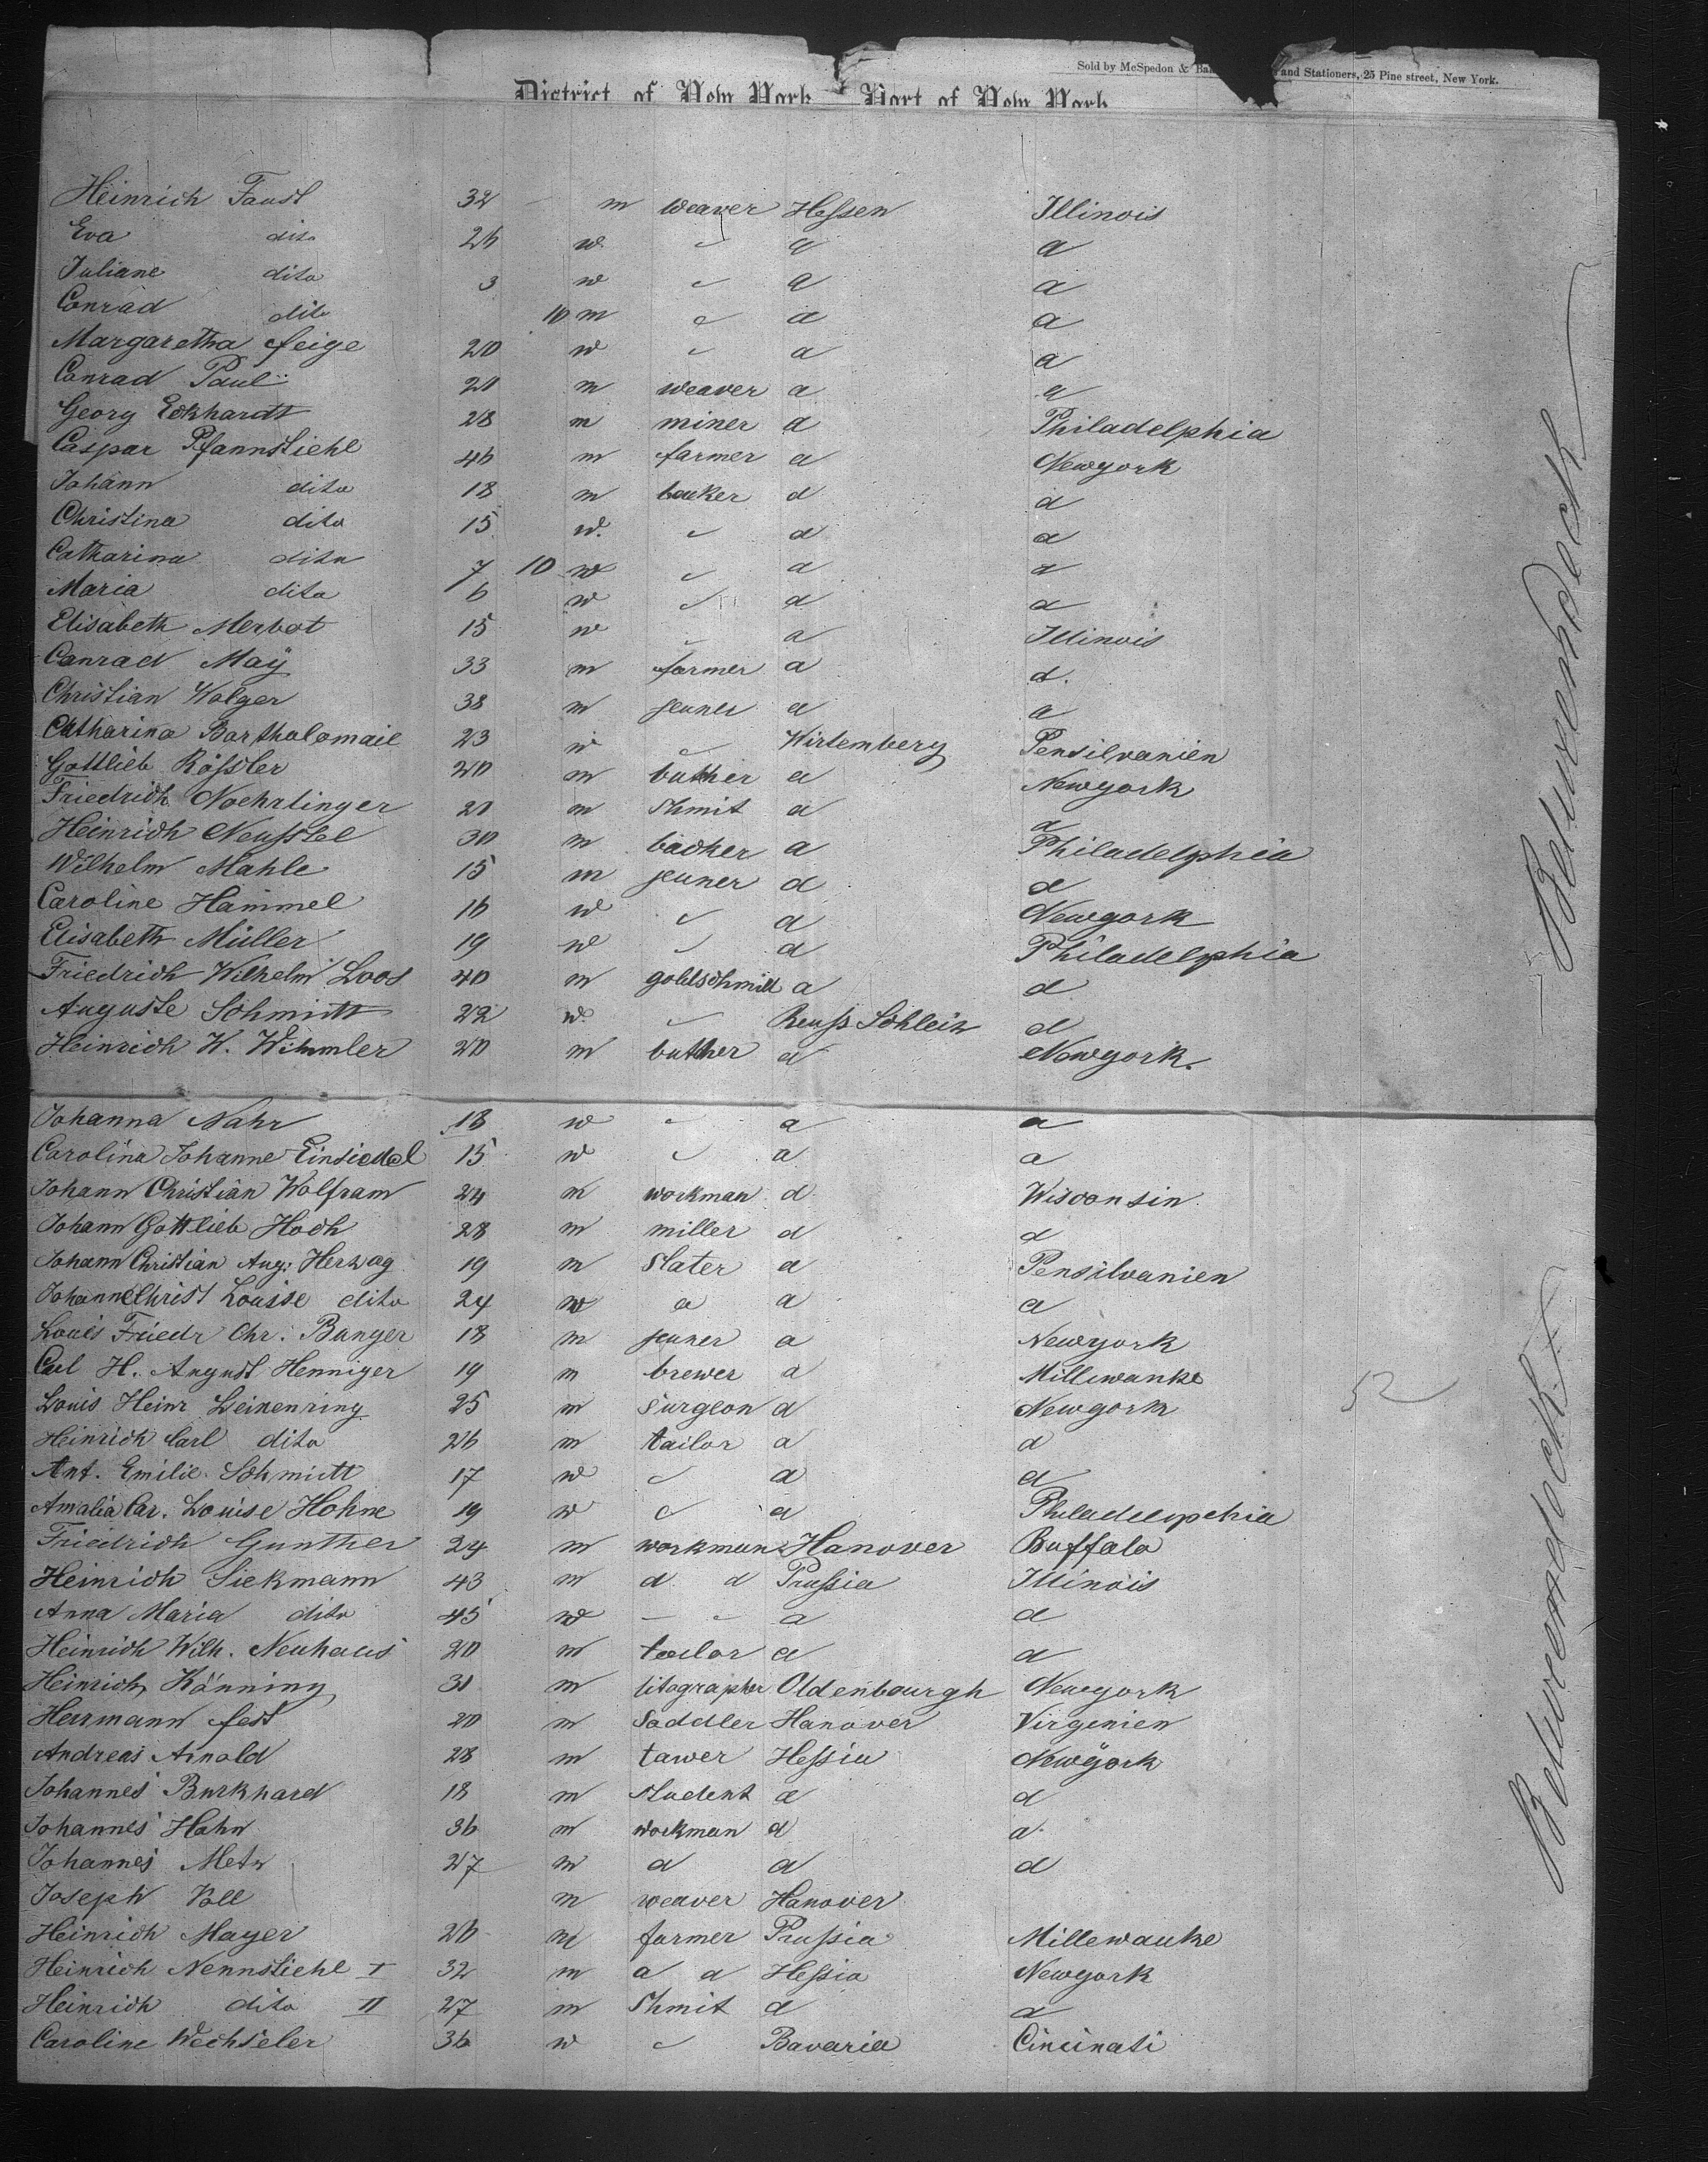 Sold by McSpedon & and Stationers, 25 Pine street, New York.
District of New York Port of New York
Heinrich Faust 32 m weaver Hessen Illinois
Eva dito 26 w " a a
Juliane dito 3 w " a a
Conrad dito 10 m " a a
Margaretha feige 20 w " a a
Conrad Paul 20 m weaver a a
Georg Eckhardt 28 m miner d Philadelphia
Caspar Pfannstiehl 46 m farmer a Newyork
Johann dito 18 m backer d d
Christina dito 15 w. " d a
Catharina dito 7 10 w " a a
Maria dito 6 w " d a
Elisabeth Merbot 15 w " a Illinois
Conrad Maÿ 33 m farmer a d.
Christian Wolger 38 m a a
Catharina Bartholomaie 23 w " Wirtemberg Pensilvanien
Gottlieb Rössler 20 m buther a Newyork
Friedrich Noehrlinger 20 m Shmit a a
Heinrich Neussel 30 m bacher a Philadelphia
Wilhelm Mahle 15 m d d
Caroline Hammel 16 w " a Newyork
Elisabeth Müller 19 w " d Philadelphia
Friedrich Wilhelm Loos 40 m goldschmid a d
Auguste Schmidt 22 w. " Reuss Schleiz d
Heinrich W. Wimmler 20 m buther a Newyork.
Johanna Nahr 18 w " a a
Carolina Johanne Einsiedel 15 w " a a
Johann Christian Wolfram 24 m workman d Wisconsin
Johann Gottlieb Hoch 28 m miller d d
Johann Christian Aug: Herzog 19 m Slater a Pensilvanien
Johanne Christ Louise dito 24 w a a a
Louis Friedr Chr. Bunger 18 m a Newyork
Carl H. August Henniger 19 m brewer a Millewauke
Louis Heinr Leinenring 25 m Surgeon d Newyork
52
Heinrich Carl dito 26 m tailor a d
Ant. Emilie Schmidt 17 w " a d
Amalia Car. Louise Hohne 19 w " a Philadelpchia
Friedrich Gunther 24 m workman Hanover Buffalo
Heinrich Siekmann 43 m d d Prussia Illinois
Anna Maria dito 45 w — " a d
Heinrich Wilh. Neuhaus 20 m tailor a d
Heinrich Könning 31 m litographer Oldenbourgh Newyork
Herrmann fest 20 m Saddler Hanover Virginien
Andreas Arnold 28 m tawer Hessia Newÿork
Johannes Burkhard 18 m Student a d
Johannes Hahn 36 m workman d a
Johannes Metz 27 m d d d
Joseph m weaver Hanover
Heinrich Mayer 26 m farmer Prussia Millewauke
Heinrich Nennstiehl I 32 m a a Hessia Newyork
Heinrich dito II 27 m Shmit d a
Caroline Wechseler 36 w " Bavaria Cincinati